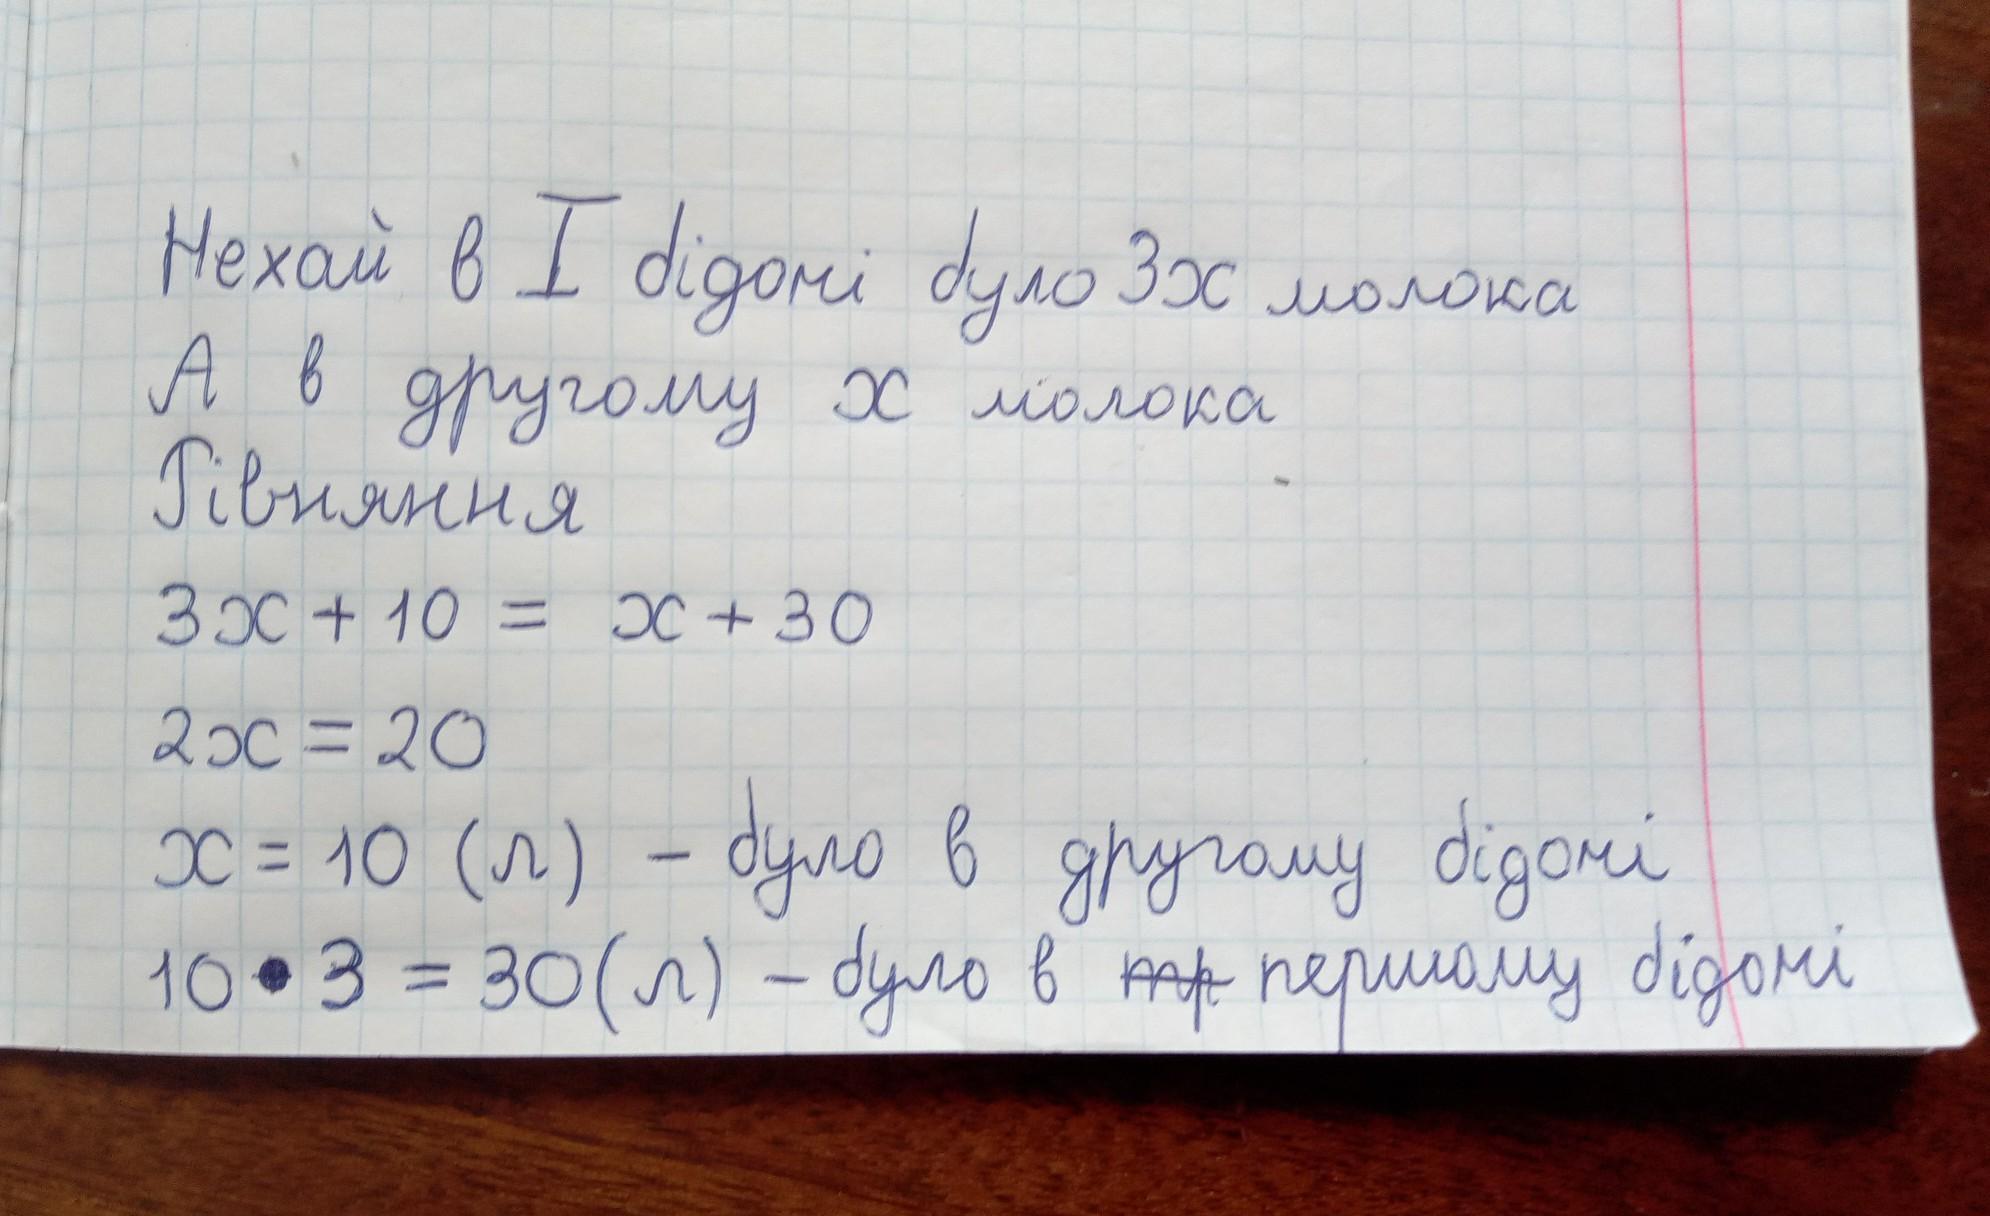 Нехай в I бідоні було 3x молока
А в другому x молока
Рівняння
3x + 10 = x + 30
2x = 20
x = 10 (л) - було в другому бідоні
10 • 3 = 30 (л) - було в першому бідоні